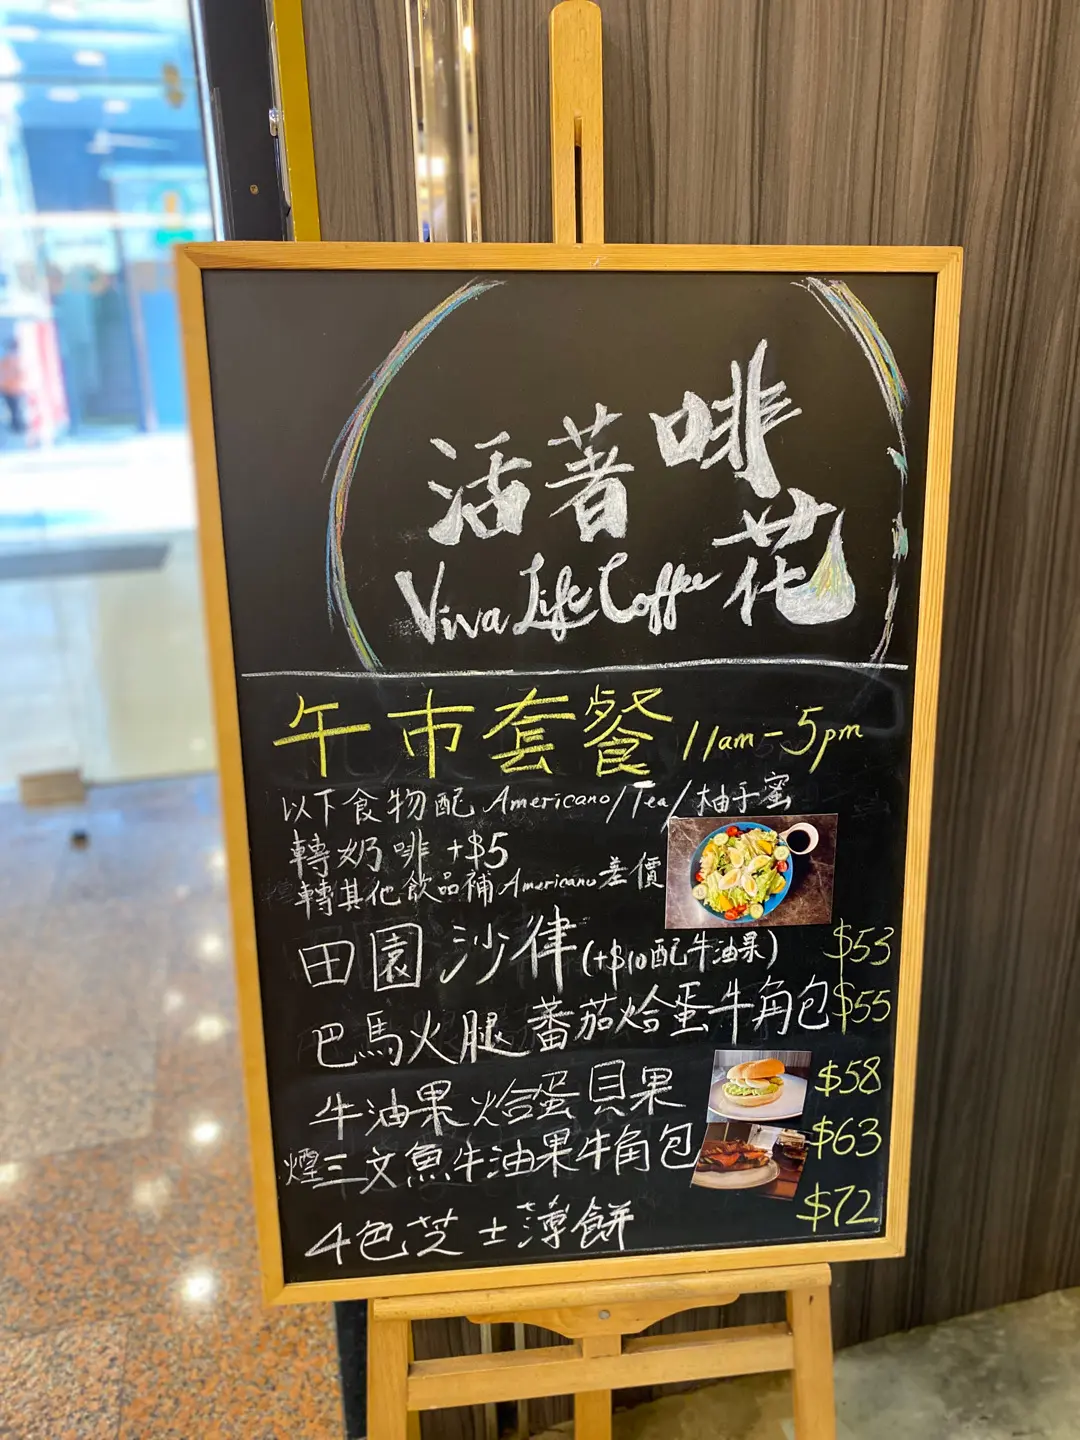 活著啡花
Viva Life Coffee
午市套餐 11am-5pm
以下食物配 Americano/Tea/柚子蜜
轉奶啡 +$5
轉其化飲品補 Americano 差價
田園沙律 (+$10配牛油果) $53
巴馬火腿蕃茄烩蛋牛角包 $55
牛油果烩蛋貝果 $58
煙三文魚牛油果牛角包 $63
4色芝士薄餅 $72